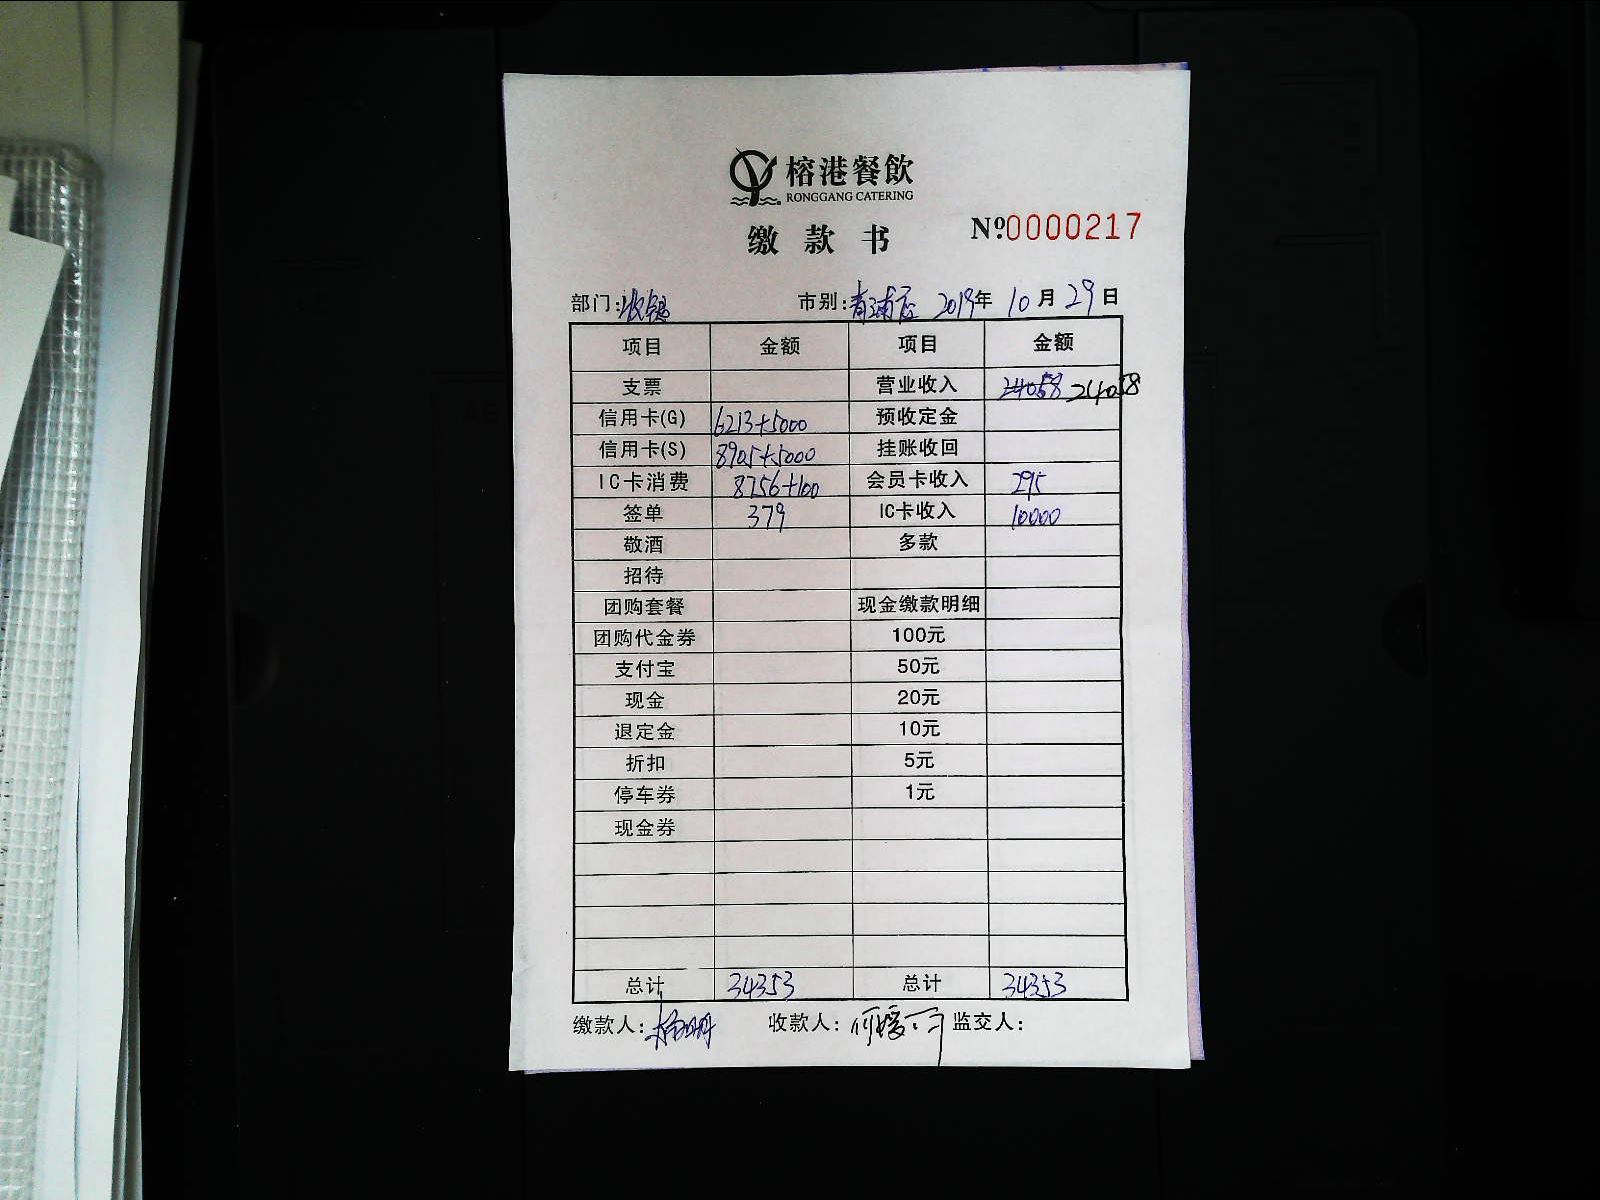 榕港餐飲
RONGGANG CATERING
缴款书 №0000217
部门:收银 市别:青浦店 2019年10月29日
项目 金额 项目 金额
支票 营业收入 24058 24058
信用卡(G) 6213+5000 预收定金
信用卡(S) 8905+5000 挂账收回
IC卡消费 8756+100 会员卡收入 295
签单 379 IC卡收入 10000
敬酒 多款
招待
团购套餐 现金缴款明细
团购代金券 100元
支付宝 50元
现金 20元
退定金 10元
折扣 5元
停车券 1元
现金券
总计 34353 总计 34353
缴款人: 收款人: 监交人: